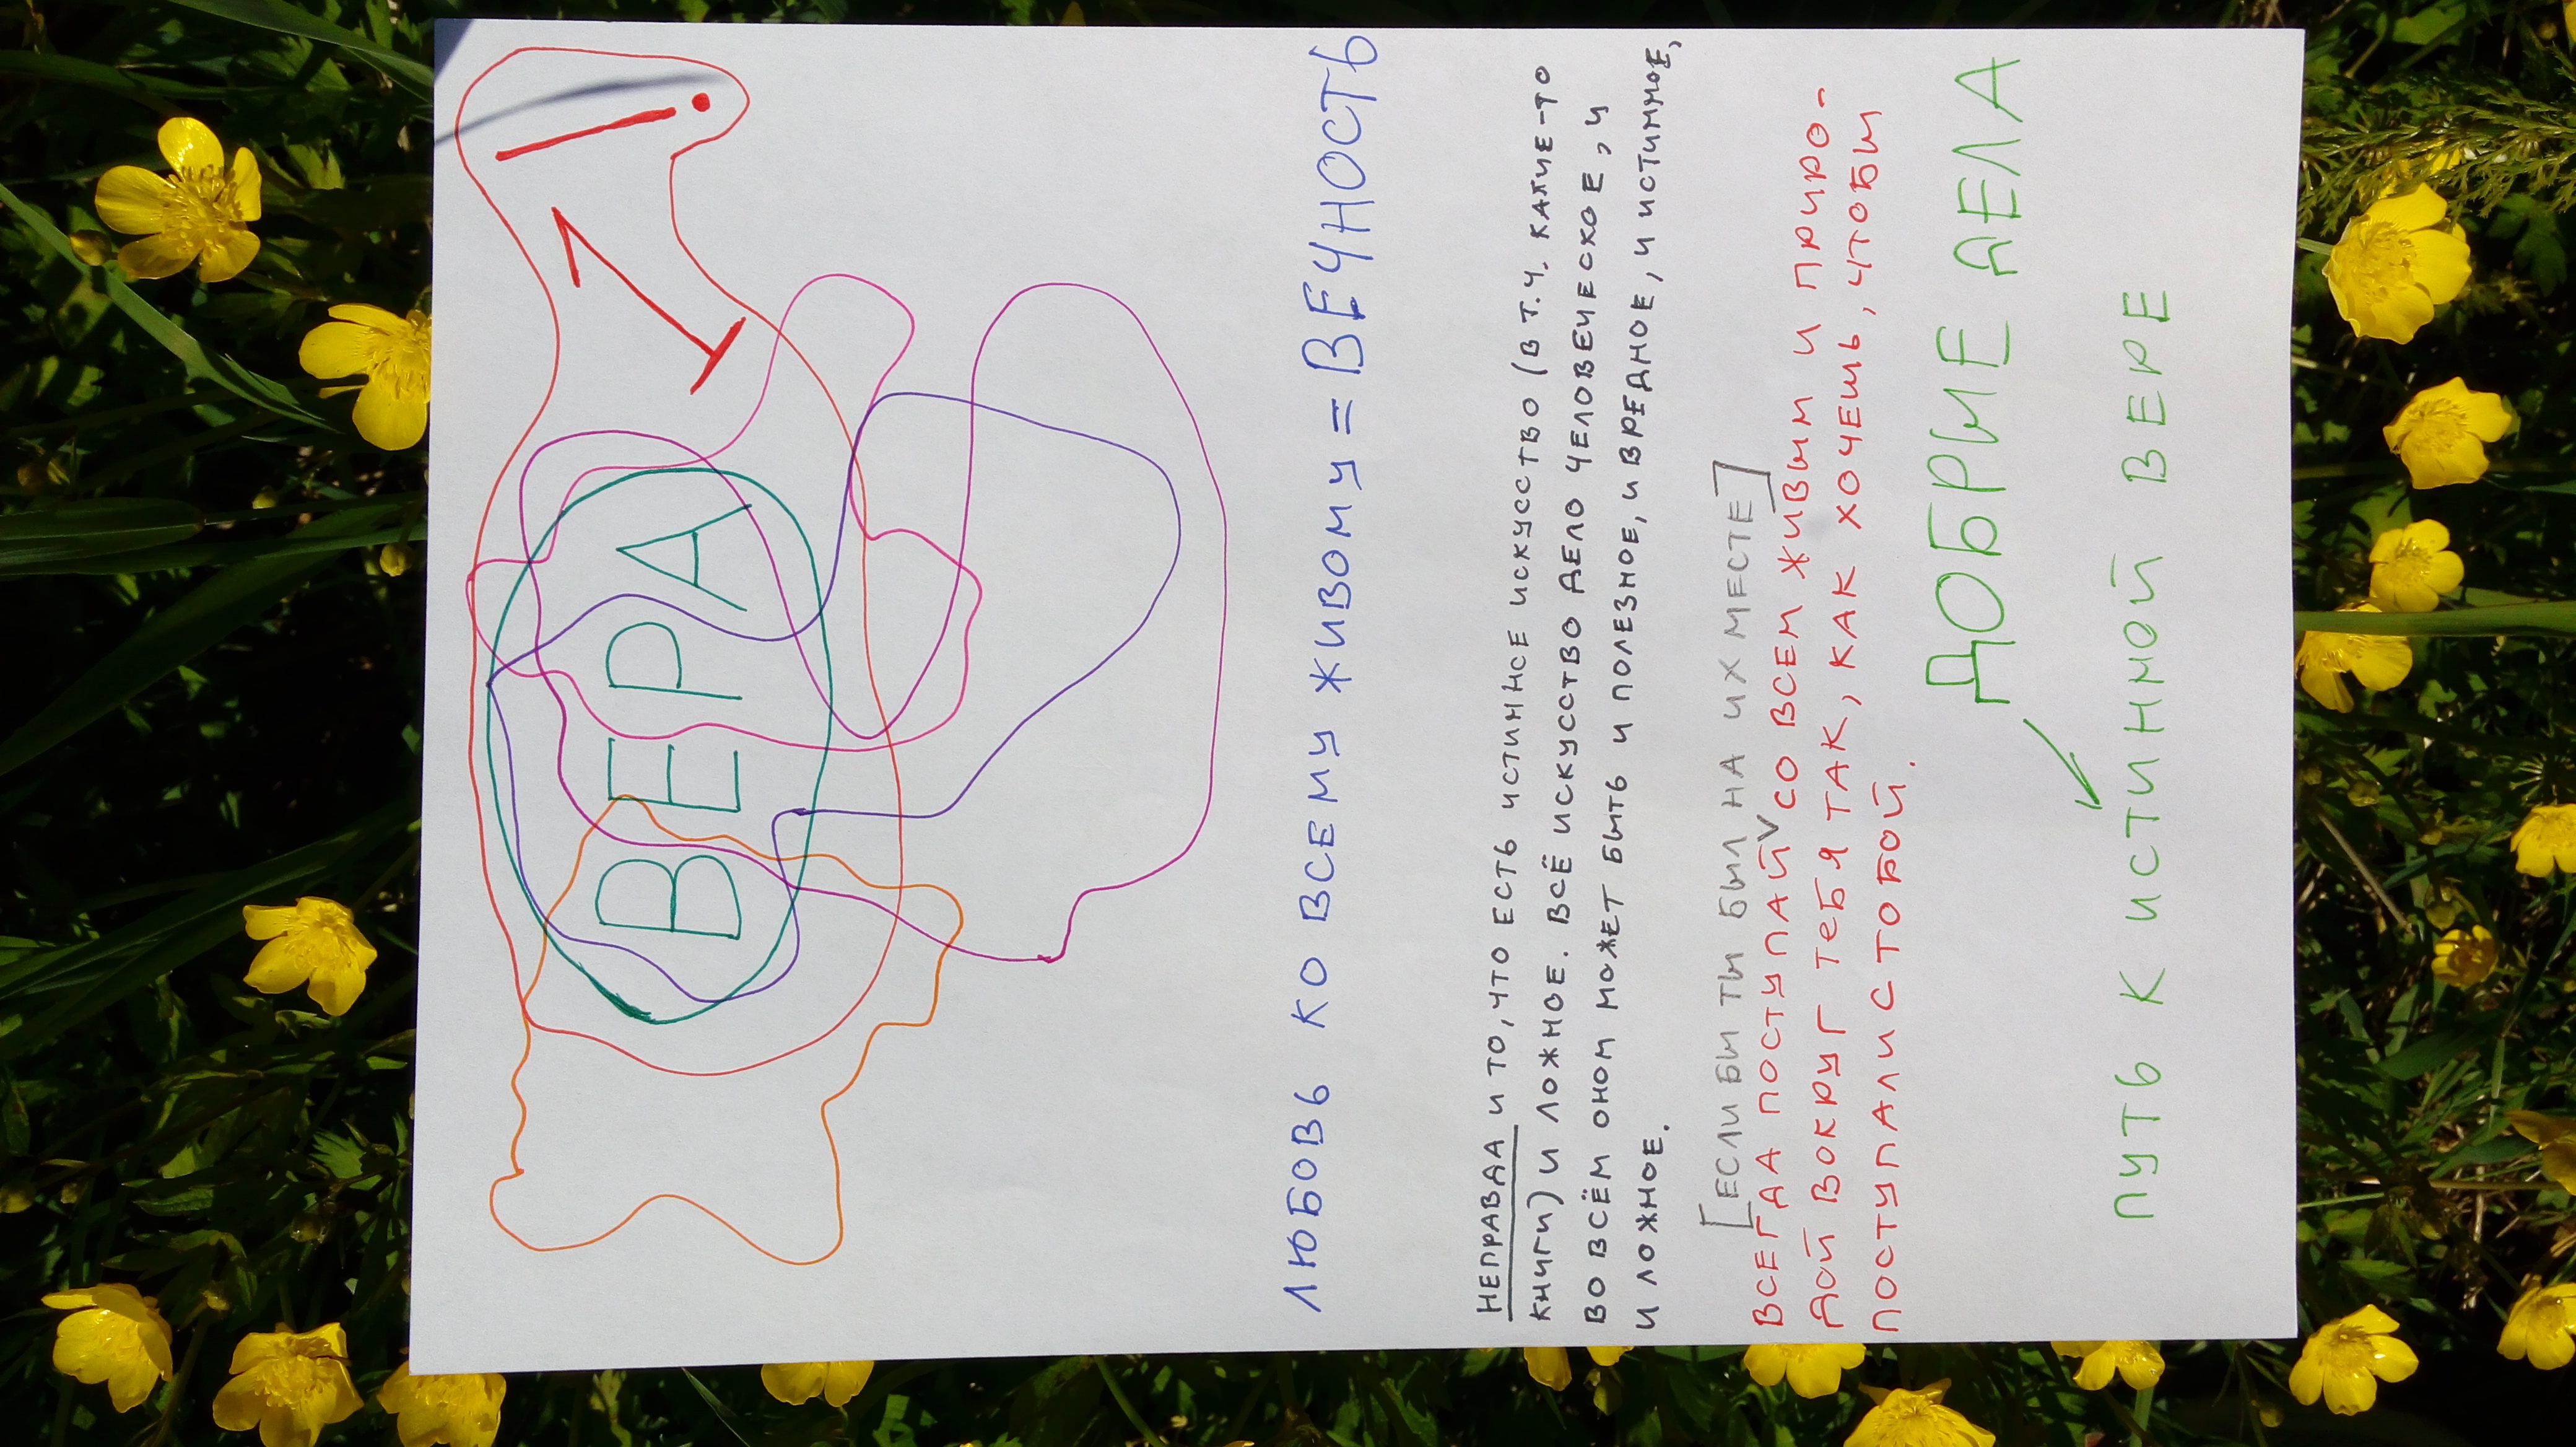 ВЕРА 1!
ЛЮБОВЬ КО ВСЕМУ ЖИВОМУ = ВЕЧНОСТЬ
НЕПРАВДА И ТО, ЧТО ЕСТЬ ИСТИННОЕ ИСКУССТВО (В Т.Ч. КАКИЕ-ТО
КНИГИ) И ЛОЖНОЕ. ВСЁ ИСКУССТВО ДЕЛО ЧЕЛОВЕЧЕСКОЕ, И
ВО ВСЁМ ОНОМ МОЖЕТ БЫТЬ И ПОЛЕЗНОЕ, И ВРЕДНОЕ, И ИСТИННОЕ,
И ЛОЖНОЕ.
[ЕСЛИ БЫ ТЫ БЫЛ НА ИХ МЕСТЕ]
ВСЕГДА ПОСТУПАЙ СО ВСЕМ ЖИВЫМ И ПРИРО-
ДОЙ ВОКРУГ ТЕБЯ ТАК, КАК ХОЧЕШЬ, ЧТОБЫ
ПОСТУПАЛИ С ТОБОЙ.
ДОБРЫЕ ДЕЛА
ПУТЬ К ИСТИННОЙ ВЕРЕ